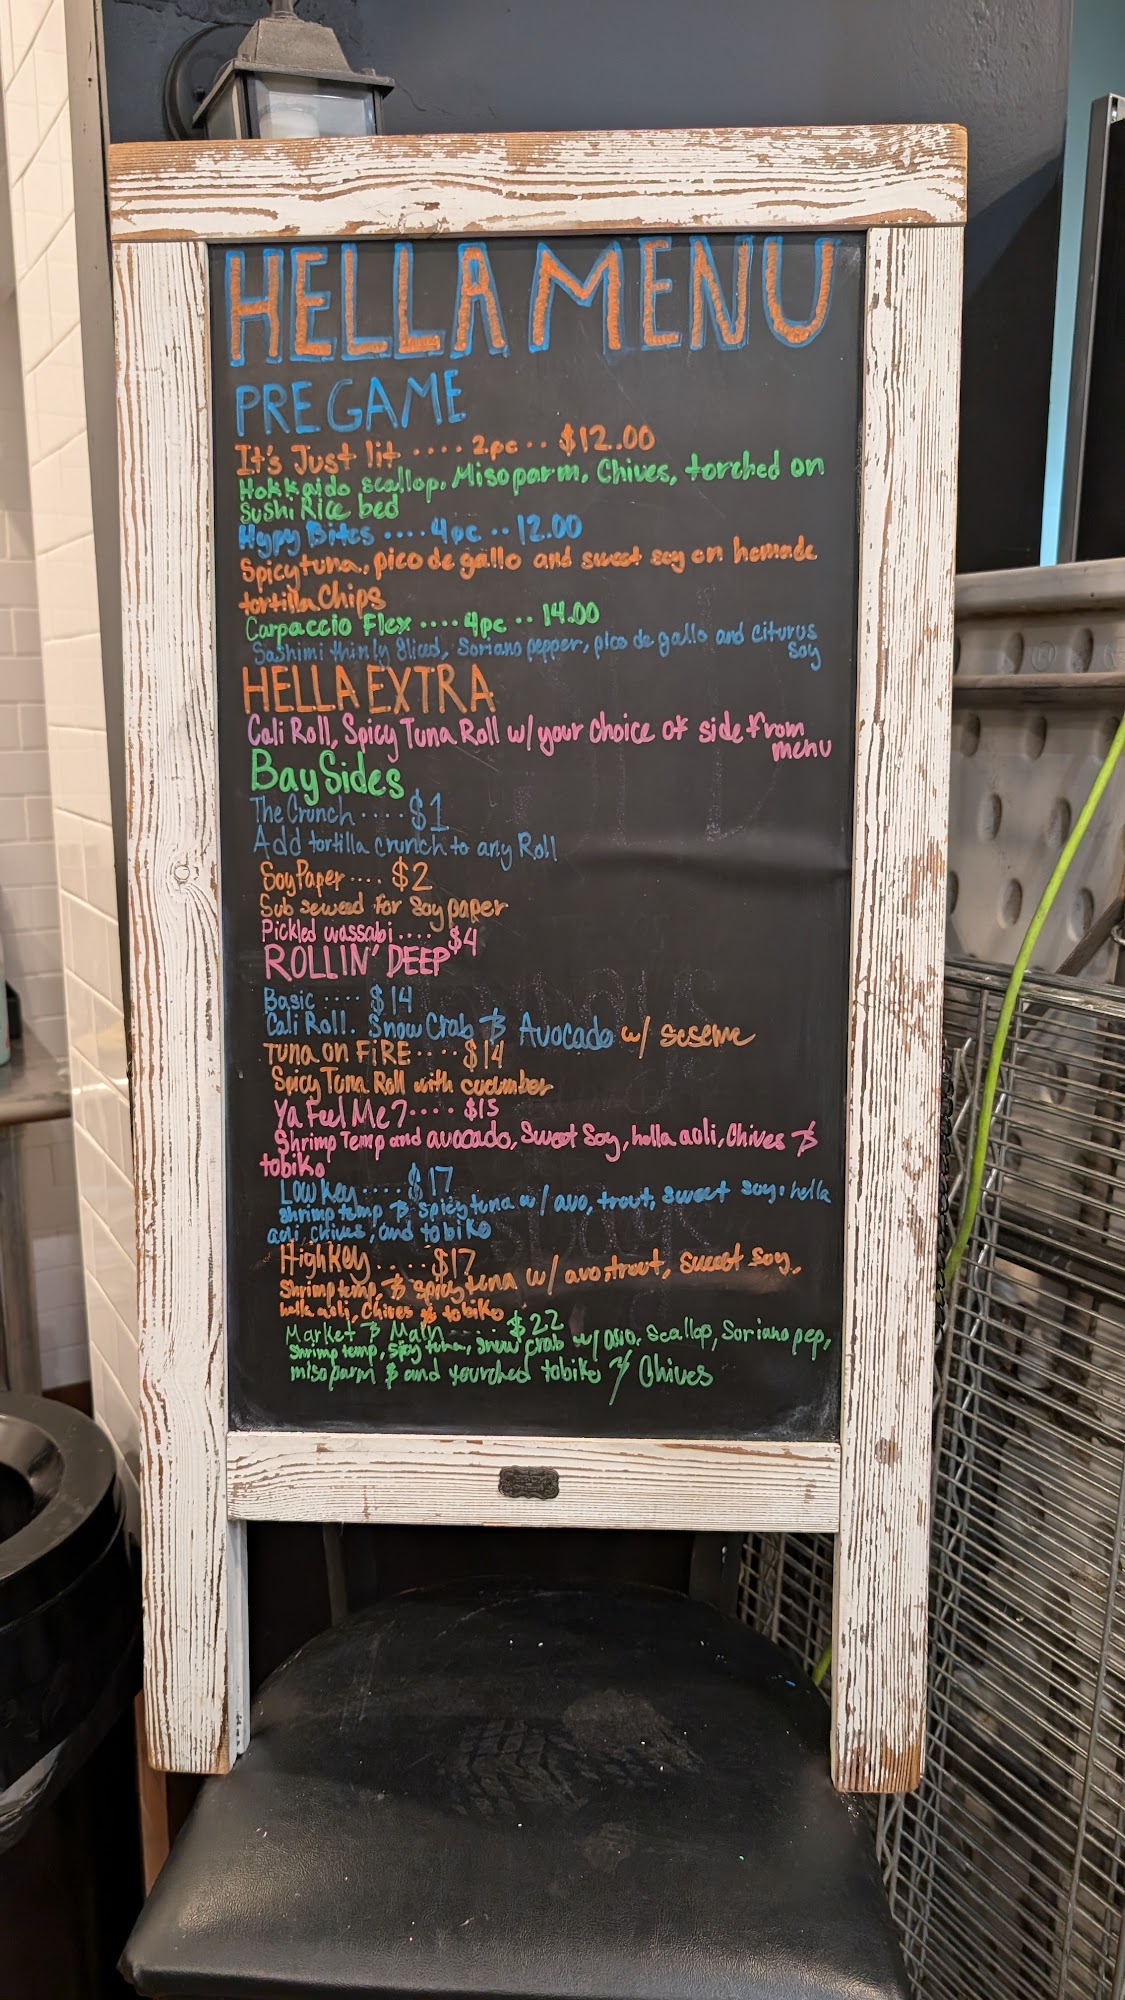 HELLA MENU
PRE GAME
It's Just lit .... 2pc .. $12.00
Hokkaido scallop, Miso parm, Chives, torched on
Sushi Rice bed
Hypy Bites .... 4pc .. 12.00
Spicy tuna, pico de gallo and sweet soy on homade
tortilla Chips
Carpaccio Flex .... 4pc .. 14.00
Sashimi thinly Sliced, Soriano pepper, pico de gallo and citurus
soy
HELLA EXTRA
Cali Roll, Spicy Tuna Roll w/ your choice of side from
menu
Bay Sides
The Crunch .... $1
Add tortilla crunch to any Roll
Soy Paper .... $2
Sub sewed for Soy paper
Pickled wassabi .... $4
ROLLIN' DEEP
Basic .... $14
Cali Roll. Snow Crab & Avocado w/ seseme
Tuna on FiRE .... $14
Spicy Tuna Roll with cucumber
Ya Feel Me? .... $15
Shrimp Temp and avocado, Sweet Soy, hella aoli, Chives &
tobiko
Low key .... $17
Shrimp temp & spicy tuna w/ avo, trout, sweet soy, hella
aoli, chives, and tobiko
High Key .... $17
Shrimp temp, & spicy tuna w/ avo, trout, sweet soy,
hella aoli, Chives & tobiko
Market & Main .... $22
Shrimp temp, Spicy tuna, snow crab w/ avo, scallop, Soriano pep,
miso parm $ and tourched tobiko & Chives